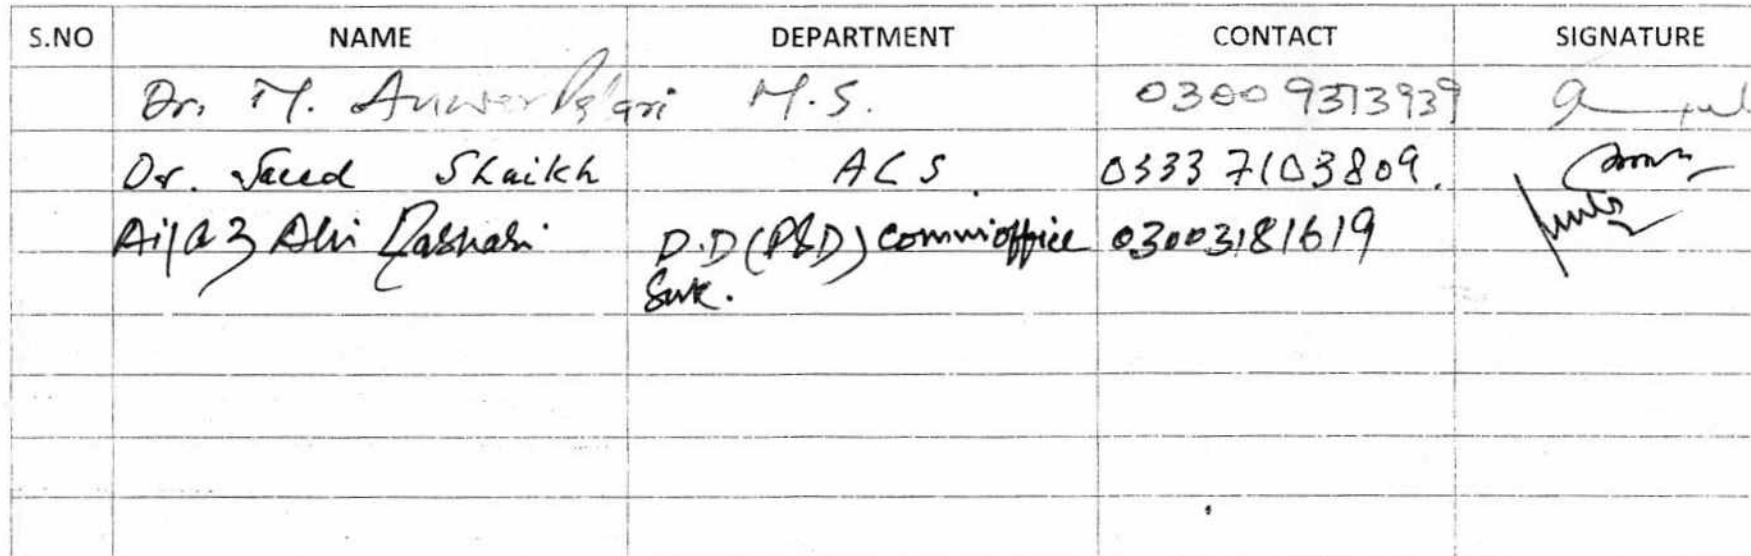 S.NO NAME DEPARTMENT CONTACT SIGNATURE
Dr. M. Anwer M.S. 03009313939
Dr. Saeed Shaikh ACS 03337103809.
Aijaz Ali D.D (P&D) commioffice 03003181619
Suk.